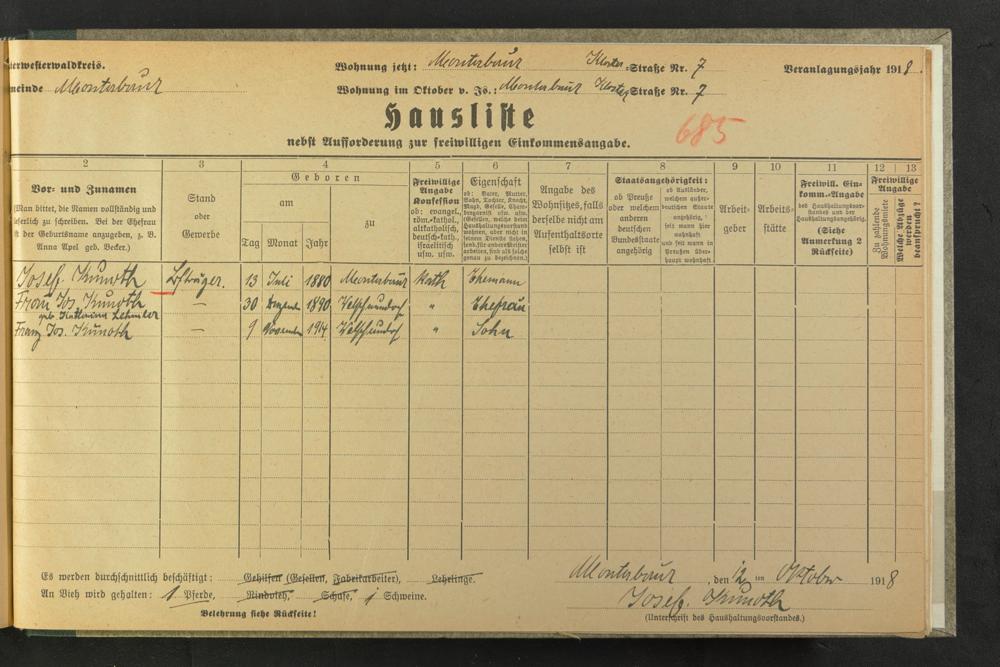 terwesterwaldkreis. Wohnung jetzt: Montabaur Kloster-Straße Nr. 7 Veranlagungsjahr 1918.
meinde Montabaur Wohnung im Oktober v. Js.: Montabaur Kloster Straße Nr. 7
Hausliste
685
nebst Aufforderung zur freiwilligen Einkommensangabe.
2 3 4 5 6 7 8 9 10 11 12 13
Vor- und Zunamen
(Man bittet, die Namen vollständig und
leserlich zu schreiben. Bei der Ehefrau
ist der Geburtsname anzugeben, z. B.
Anna Apel geb. Becker.)
Stand
oder
Gewerbe
Geboren
am
zu
Tag Monat Jahr
Freiwillige
Angabe
Konfession
ob: evangel.,
röm.-kathol.,
altkatholisch,
deutsch-kath.,
israelitisch
usw. usw.
Eigenschaft
ob: Vater, Mutter,
Sohn, Tochter, Knecht,
Angabe des
Wohnsitzes, falls
derselbe nicht am
Aufenthaltsorte
selbst ist
Staatsangehörigkeit:
ob Preuße
oder welchem
anderen
deutschen
Bundesstaate
angehörig
ob Ausländer,
welchem außer-
deutschen Staate
angehörig,
seit wann hier
wohnhaft
und seit wann in
Preußen über-
haupt wohnhaft
Arbeit-
geber
Arbeits-
stätte
Freiwill. Ein-
komm.-Angabe
des Haushaltungsvor-
standes und der
Haushaltungsangehörig.
(Siehe
Anmerkung 2
Rückseite)
Freiwillige
Angabe
Zu zahlende
Wohnungsmiete
Welche Abzüge
werden
beansprucht?
Josef Kunoth 13 Juli 1880 Montabaur Kath Ehemann
Frau Jos. Kunoth — 30 Dezember 1890 Welschneudorf " Ehefrau
geb. Katharina Lehmler
Franz Jos. Kunoth — 9 November 1914 Welschneudorf " Sohn
Es werden durchschnittlich beschäftigt: Gehilfen (Gesellen, Fabrikarbeiter), Lehrlinge.
An Vieh wird gehalten: 1 Pferde, Rindvieh, Schafe, 1 Schweine.
Belehrung siehe Rückseite!
Montabaur, den 12 ten Oktober 1918
Josef Kunoth
(Unterschrift des Haushaltungsvorstandes.)